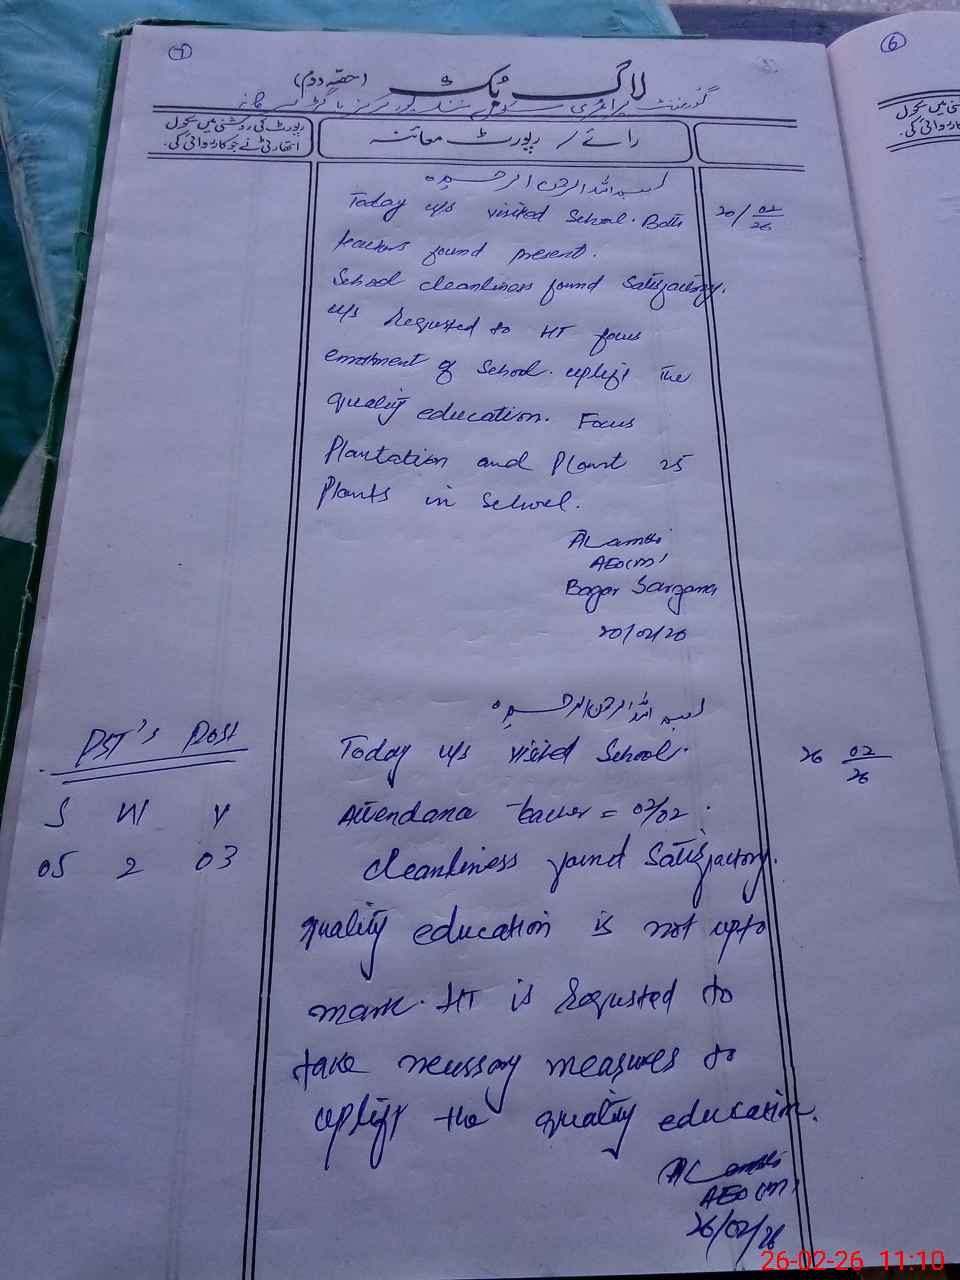 7
6
لاگ بُک (حصّہ دوم)
گورنمنٹ پرائمری سکول
رپورٹ کی روشنی میں سکول
اتھارٹی نے جو کارروائی کی۔
رائے / رپورٹ معائنہ
بسم اللہ الرحمن الرحیم
Today u/s visited School. Both
20/02/26
teachers found present.
School cleanliness found Satisfactory.
u/s Requsted to HT focus
enrolment of School. uplift the
quality education. Focus
Plantation and Plant 25
Plants in School.
AEO(M)
Bagar Sargana
20/02/26
بسم اللہ الرحمن الرحیم
PST's Post
Today u/s visited School.
26 02/26
S W V
Attendance teacher = 02/02.
05 2 03
cleanliness found Satisfactory.
quality education is not upto
mark. HT is Requsted to
take necessary measures to
uplift the quality education.
AEO(M)
26/02/26
26-02-26 11:10